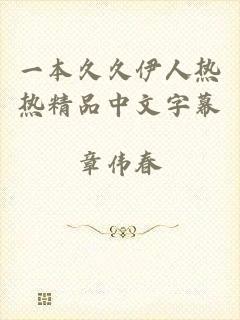 一本久久伊人热
热精品中文字幕
章伟春